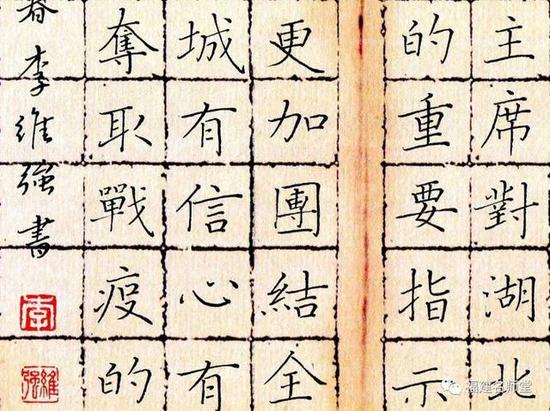 主席對湖北
的重要指示
更加團結全
城有信心有
奪取戰疫的
春李維強書
李
維強
福建名师堂